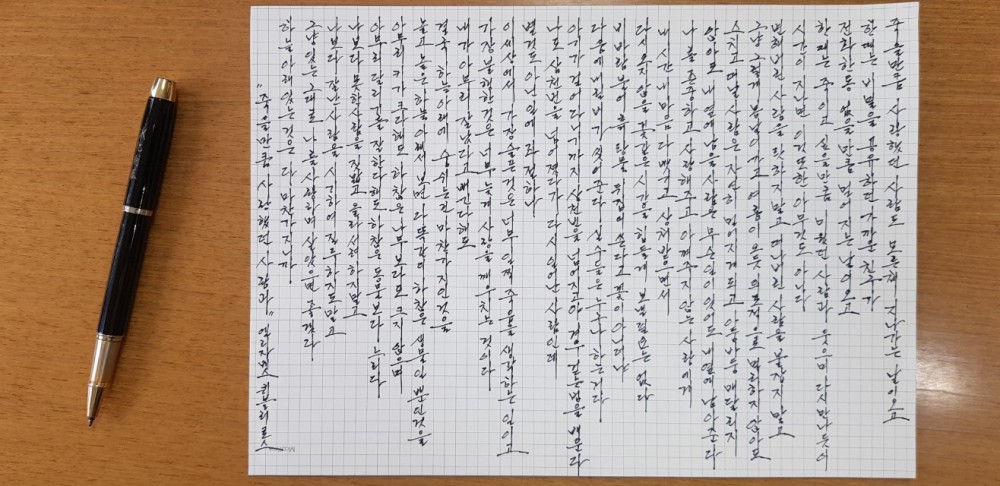 죽을만큼 사랑했던 사람도 모른체 지나가는 날이오고
한때는 비밀을 공유하던 가까운 친구가
전화한통 없을만큼 멀어지는 날이오고
한때는 죽이고 싶을만큼 미웠던 사람과 웃으며 다시만나듯이
시간이 지나면 이것또한 아무것도 아니다
변해버린 사람을 탓하지말고 떠나버린 사람을 붙잡지 말고
그냥 그렇게 봄날이가고 여름이 오듯 의도적으로 멀리하지 않아도
스치고 떠날 사람은 자연히 멀어지게되고 아등바등 매달리지
않아도 내 옆에 남을 사람은 무슨일이 있어도 내옆에 남아준다
나를 존중하고 사랑해주고 아껴주지 않는 사람에게
내 시간 내마음 다 내주고 상처받으면서
다시오지않을 꽃같은 시간을 힘들게 보낼필요는 없다
비바람불어 흙탕물을 뒤집어 쓴다고 꽃이 아니더냐
다음에 내릴비가 씻어준다 실수들은 누구나 하는거다
아기가 걸어다니기까지 삼천번을 넘어지고야 겨우 걷는법을 배운다
나도 삼천번을 넘어졌다가 다시 일어난 사람인데
별것도 아닌일에 좌절하나
이세상에서 가장슬픈것은 너무 일찍 죽음을 생각하는 일이고
가장 불행한것은 너무늦게 사랑을 깨우치는 것이다
내가 아무리 잘났다고 뻐긴다해도
결국 하늘아래에 숨쉬는건 마찬가지인것을
높고높은 하늘에서 보면 다 똑같이 하찮은 생물일 뿐인것을
아무리 키가 크다해도 하찮은 나무보다도 크지 않으며
아무리 달리기를 잘한다해도 하찮은 동물보다 느리다
나보다 못한사람을 짓밟고 올라서려하지말고
나보다 잘난사람을 시기하여 질투하지도말고
그냥있는그대로 나를사랑하며 살았으면 좋겠다
하늘아래있는것은 다 마찬가지니까
"죽을만큼 사랑했던 사람과" 엘리자베스 퀴블러로스